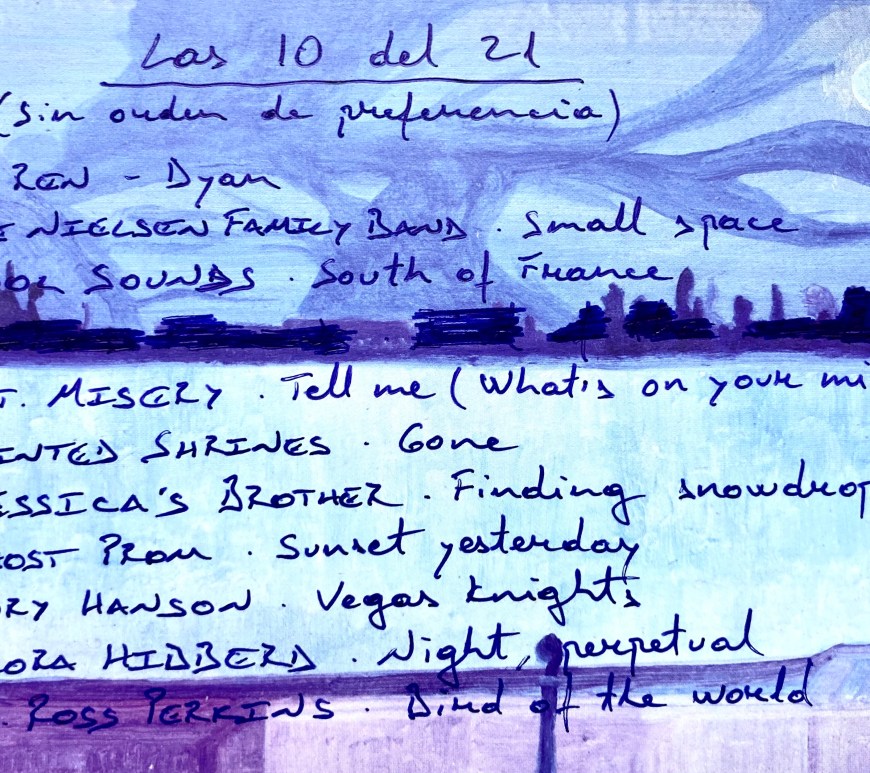 Las 10 del 21
(Sin orden de preferencia)
REN - Dyan
NIELSEN FAMILY BAND . Small space
SOUNDS . South of France
T. MISERY . Tell me (What's on your mi
INTED SHRINES . Gone
ESSICA'S BROTHER . Finding snowdrop
OST PROM . Sunset yesterday
RY HANSON . Vegas knights
ORA HIBBERD . Night, perpetual
. ROSS PERKINS . Bird of the world